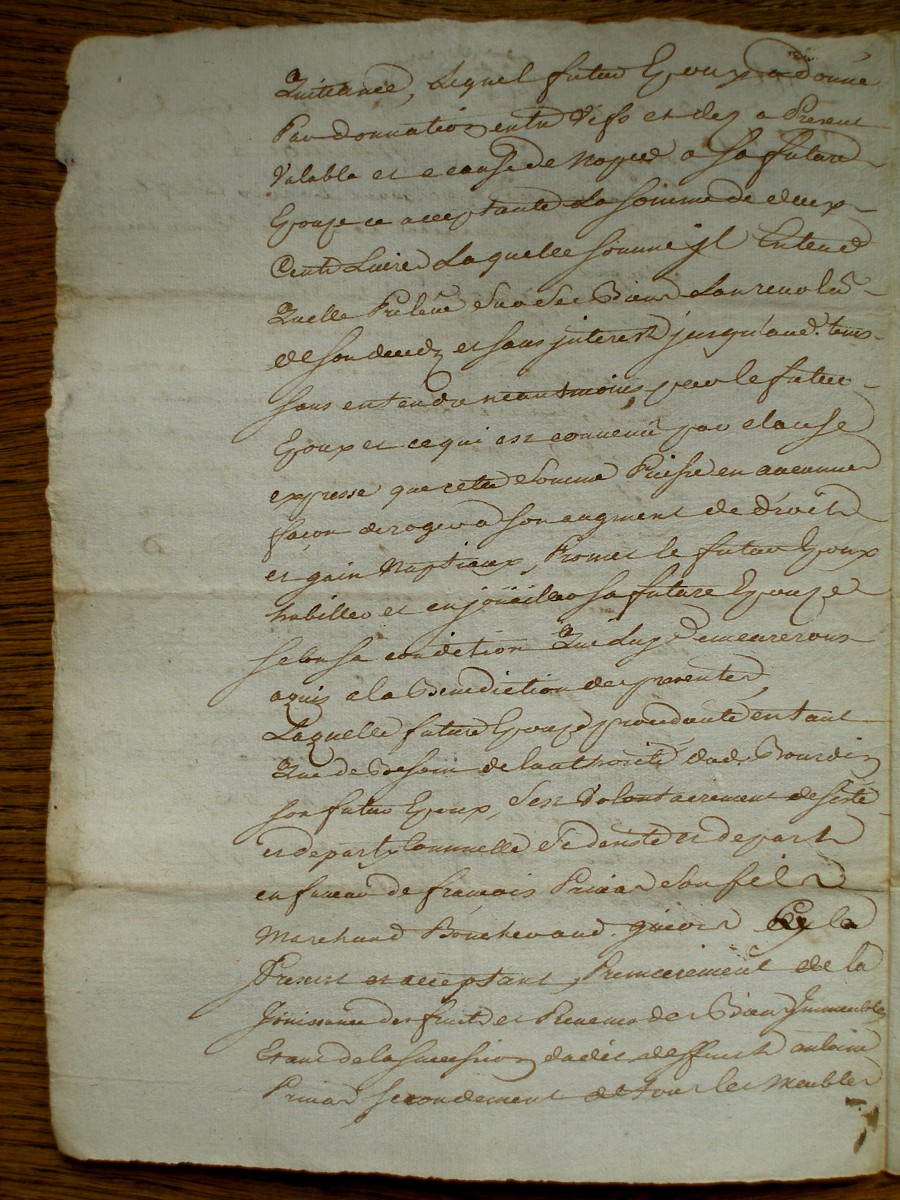 Quittance, Lequel futur Epoux a donné
Par donnation entre Vifs et dez a Present
Valable et a cause de Nopces a sa future
Epouze ce acceptante La somme de deux
Cents Livres Laquelle somme jl Entend
Quelle Préleve sur ses Biens Lan revolu
de son deceds et sans jnterest jusqu'aud. tems
sans entendre neantmoins par le futur
Epoux et ce qui est convenu par clause
expresse que cette somme Puisse en aucunne
façon deroger a son augment de droit
et gain Nuptiaux, Promet le futur Epoux
habiller et enjoüeiller sa future Epouze
selon sa condition Qui Luy Demeureront
aquis a la Benediction des presentes
Laquelle future Epouze procedante en tant
Que de Besoin de lauthorité dud. Bourdin
son futur Epoux, sest Volontairement desisté
et depart Comme elle se desiste et depart
en faveur de françois Prinar son fils
Marchand Boucher aud. Icy la
Present et acceptant, Premierement de la
Jouissance des fruits et Revenus des Biens Jmmeubles
Etant de la succession dudit deffunt antoine
Prinar secondement de tous les Meubles